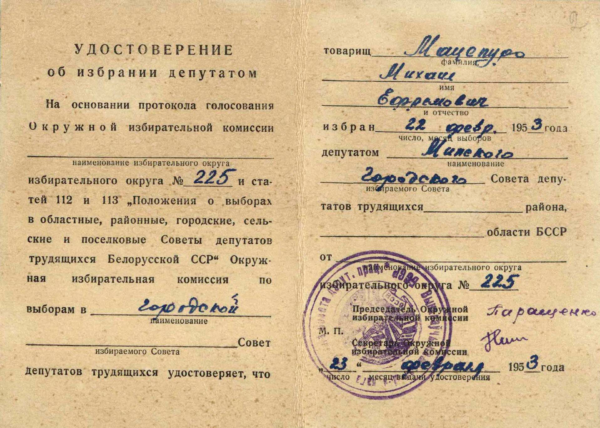 УДОСТОВЕРЕНИЕ
об избрании депутатом
На основании протокола голосования
Окружной избирательной комиссии
наименование избирательного округа
избирательного округа № 225 и ста-
тей 112 и 113 „Положения о выборах
в областные, районные, городские, сель-
ские и поселковые Советы депутатов
трудящихся Белорусской ССР“ Окруж-
ная избирательная комиссия по
выборам в городской
наименование
Совет
избираемого Совета
депутатов трудящихся удостоверяет, что
товарищ Мацепуро
фамилия
Михаил
имя
Ефремович
и отчество
избран 22 февр. 1953 года
число, месяц выборов
депутатом Минского
наименование
Городского Совета депу-
избираемого Совета
татов трудящихся района,
области БССР
от
наименование избирательного округа
избирательного округа № 225
Председатель Окружной
избирательной комиссии
Паращенко
М. П.
Секретарь Окружной
избирательной комиссии
„23“ февраля 1953 года
число месяц выдачи удостоверения